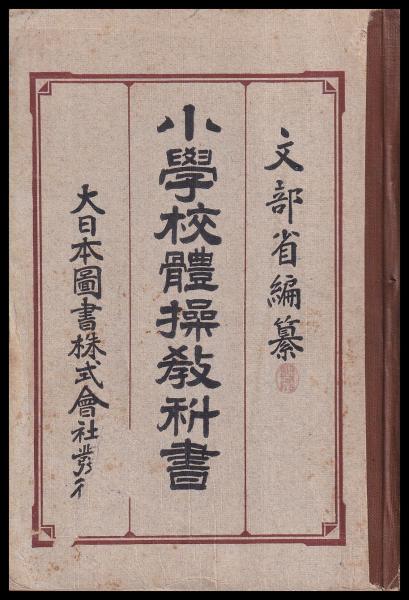 文部省編纂
小學校體操教科書
大日本圖書株式會社發行